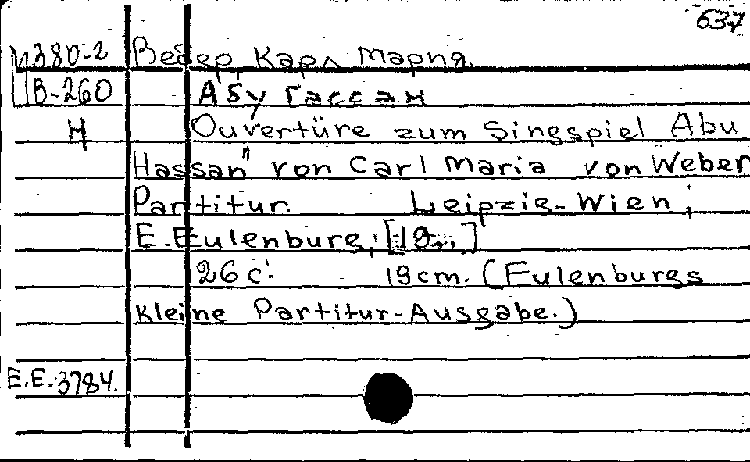 637
И380-2 Вебер, Карл Мария.
В-260 Абу Гассан
Н Ouvertüre zum Singspiel Abu
Hassan" von Carl Maria von Weber
Partitur. Leipzig-Wien;
E. Eulenburg; [19...]
26 с. 19 cm. (Eulenburgs
Kleine Partitur-Ausgabe.)
E.E. 3784.